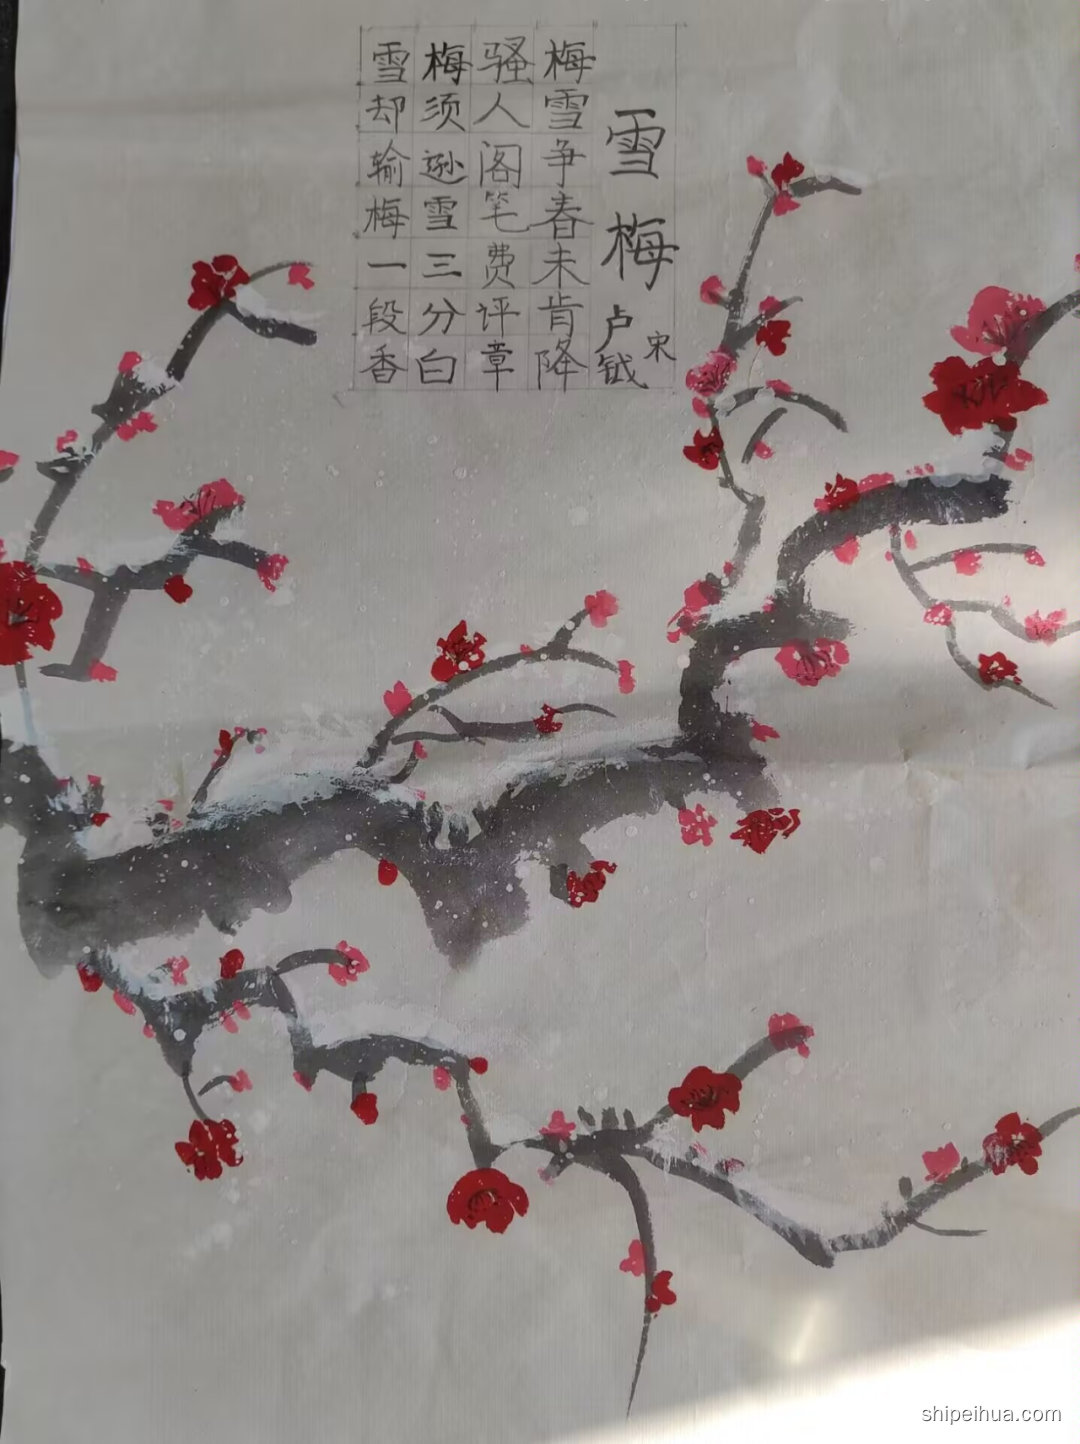 雪梅
宋 卢钺
梅雪争春未肯降
骚人阁笔费评章
梅须逊雪三分白
雪却输梅一段香
shipeihua.com